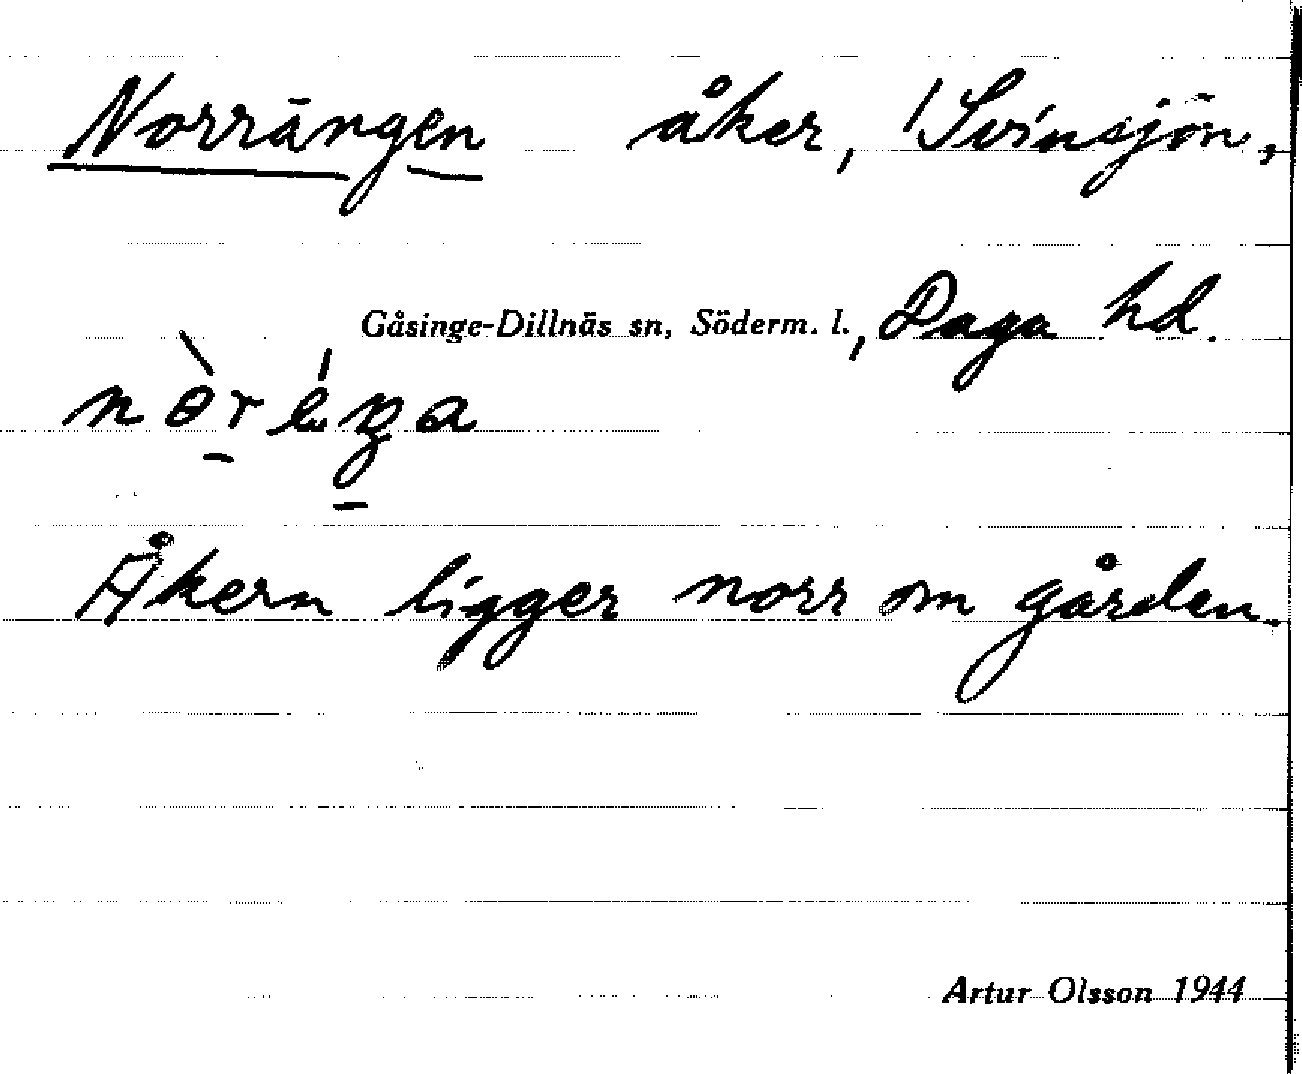 Norrängen åker, 1 Svinsjön,
Gåsinge-Dillnäs sn, Söderm. l., Daga hd.
Åkern ligger norr om gården.
Artur Olsson 1944